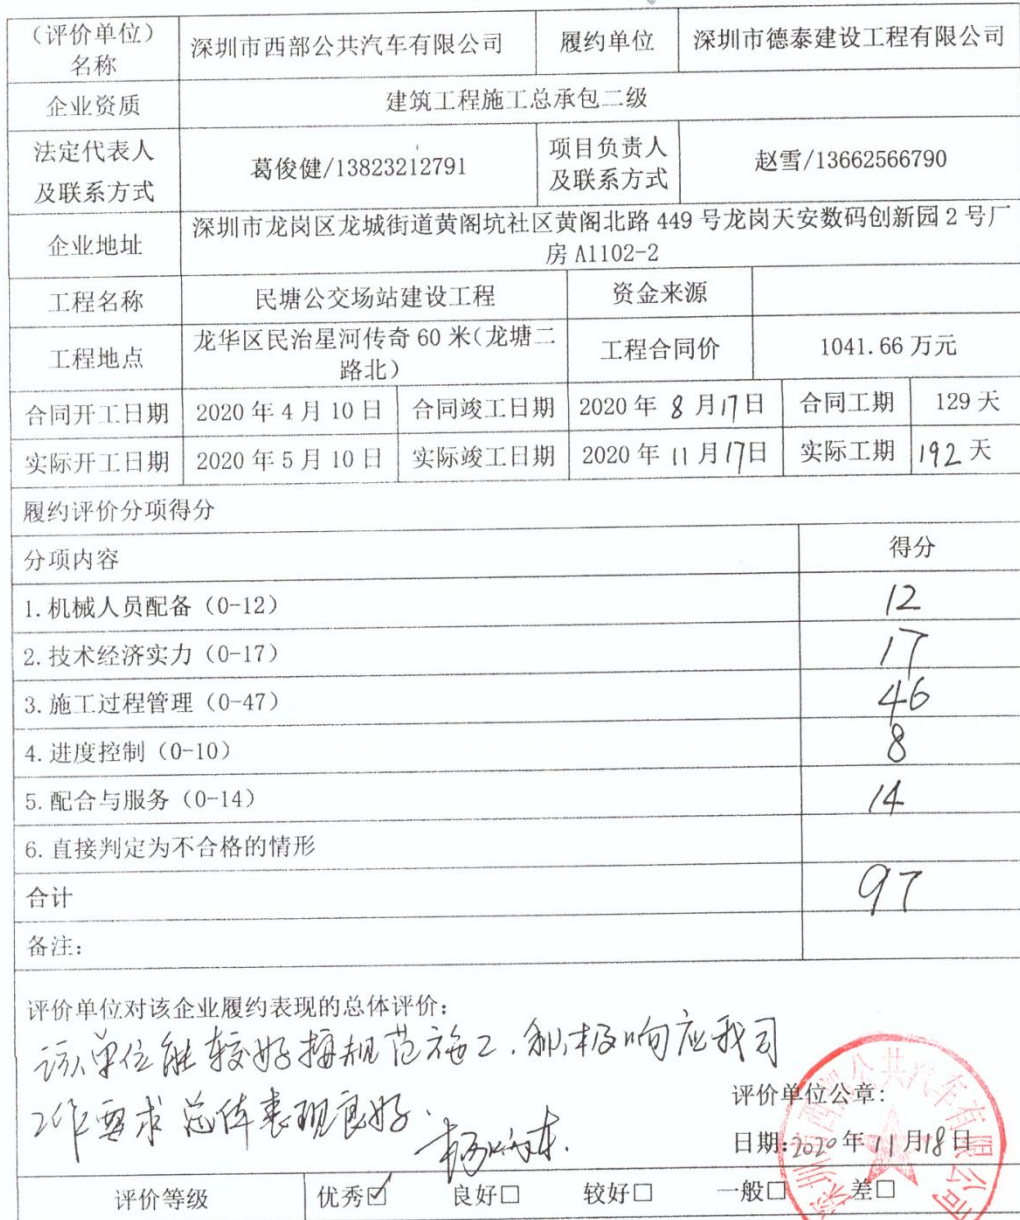 （评价单位） 深圳市西部公共汽车有限公司 履约单位 深圳市德泰建设工程有限公司
名称
企业资质 建筑工程施工总承包二级
法定代表人 葛俊健/13823212791 项目负责人 赵雪/13662566790
及联系方式 及联系方式
企业地址 深圳市龙岗区龙城街道黄阁坑社区黄阁北路 449 号龙岗天安数码创新园 2 号厂
房 A1102-2
工程名称 民塘公交场站建设工程 资金来源
工程地点 龙华区民治星河传奇 60 米(龙塘二 工程合同价 1041.66 万元
路北)
合同开工日期 2020 年 4 月 10 日 合同竣工日期 2020 年 8 月 17 日 合同工期 129 天
实际开工日期 2020 年 5 月 10 日 实际竣工日期 2020 年 11 月 17 日 实际工期 192 天
履约评价分项得分
分项内容 得分
1.机械人员配备（0-12） 12
2.技术经济实力（0-17） 17
3.施工过程管理（0-47） 46
4.进度控制（0-10） 8
5.配合与服务（0-14） 14
6.直接判定为不合格的情形
合计 97
备注：
评价单位对该企业履约表现的总体评价：
该单位能较好按规范施工，积极响应我司
工作要求 总体表现良好.
评价单位公章：
日期：2020 年 11 月 18 日
评价等级 优秀☑ 良好□ 较好□ 一般□ 差□